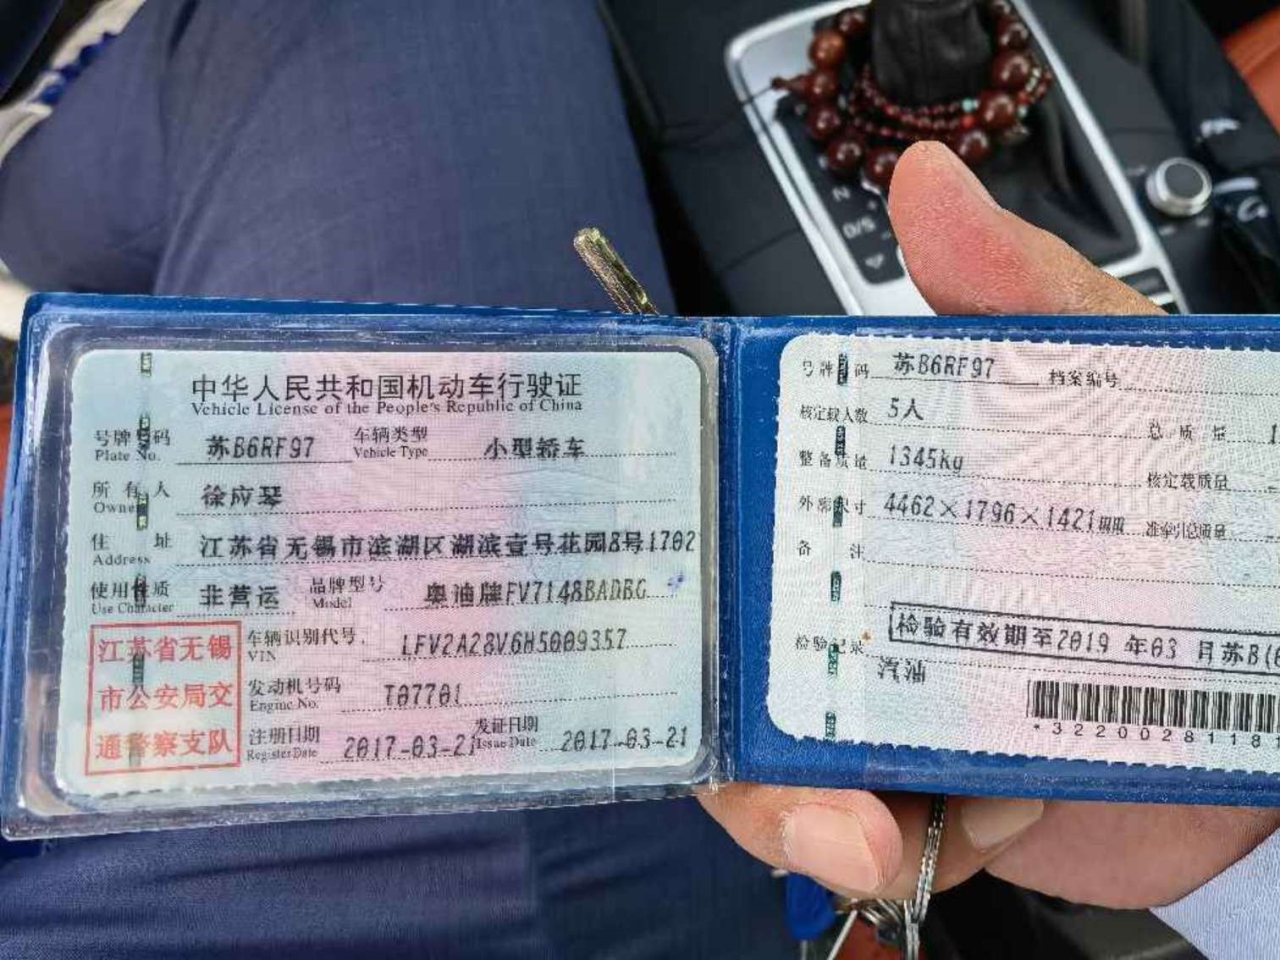 中华人民共和国机动车行驶证
Vehicle License of the People's Republic of China
号牌号码 苏B6RF97 车辆类型 小型轿车
Plate No. Vehicle Type
所有人 徐应琴
Owner
住址 江苏省无锡市滨湖区湖滨壹号花园8号1702
Address
使用性质 非营运 品牌型号 奥迪牌FV7148BADBG
Use Character Model
江苏省无锡
市公安局交
通警察支队
车辆识别代号 LFV2A28V6H5009357
VIN
发动机号码 T07701
Engine No.
注册日期 2017-03-21 发证日期 2017-03-21
Register Date Issue Date
号牌号码 苏B6RF97 档案编号
核定载人数 5人 总质量
整备质量 1345kg 核定载质量
外廓尺寸 4462×1796×1421mm 准牵引总质量
备注
检验记录 检验有效期至2019 年03 月苏B(
汽油
*3220028118
N
D/S